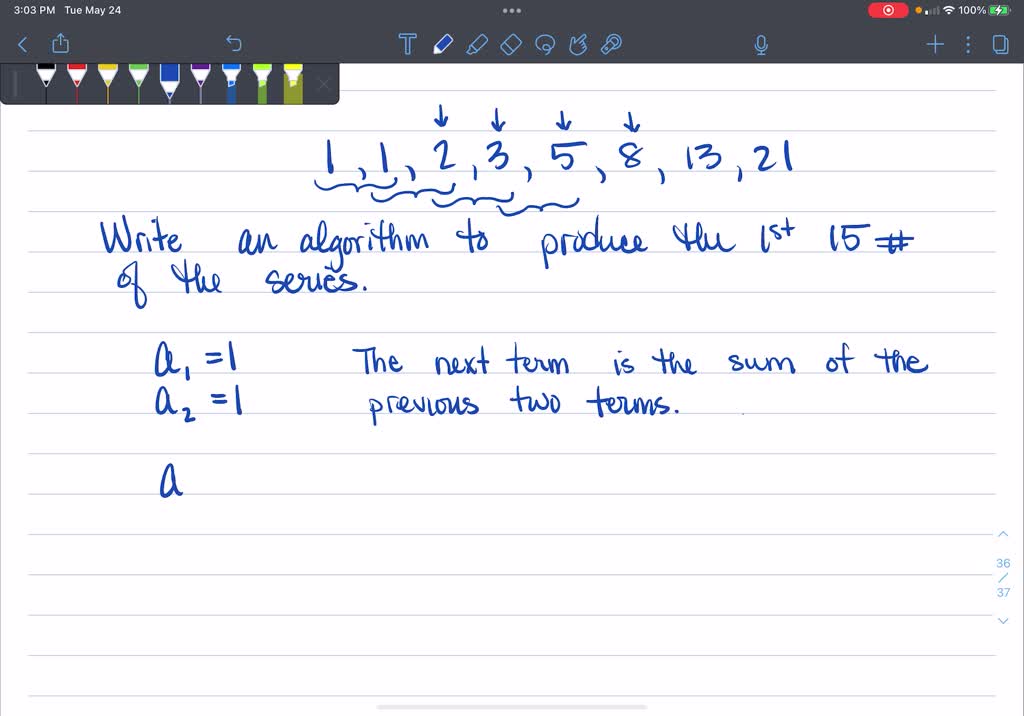 3:03 PM Tue May 24
100%
1, 1, 2, 3, 5, 8, 13, 21
Write an algorithm to produce the 1st 15 #
of the series.
a₁ = 1 The next term is the sum of the
a₂ = 1 previous two terms.
a
36
/
37